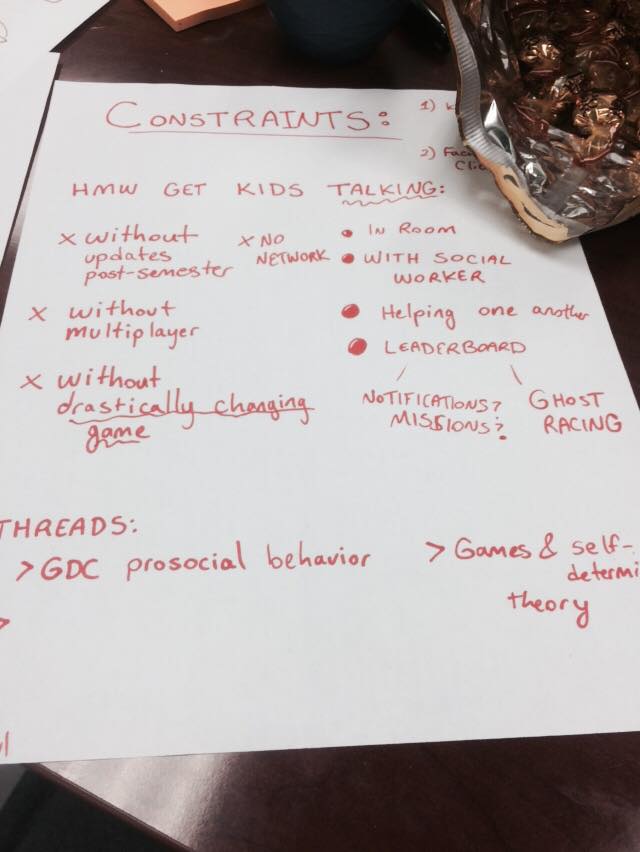 CONSTRAINTS:
1)
2)
HMW GET KIDS TALKING:
x without
updates
post-semester
x NO
NETWORK
x without
multiplayer
x without
drastically changing
game
• IN ROOM
• WITH SOCIAL
WORKER
• Helping one another
• LEADERBOARD
NOTIFICATIONS?
MISSIONS?
GHOST
RACING
THREADS:
> GDC prosocial behavior
> Games & self-
determi
theory
>